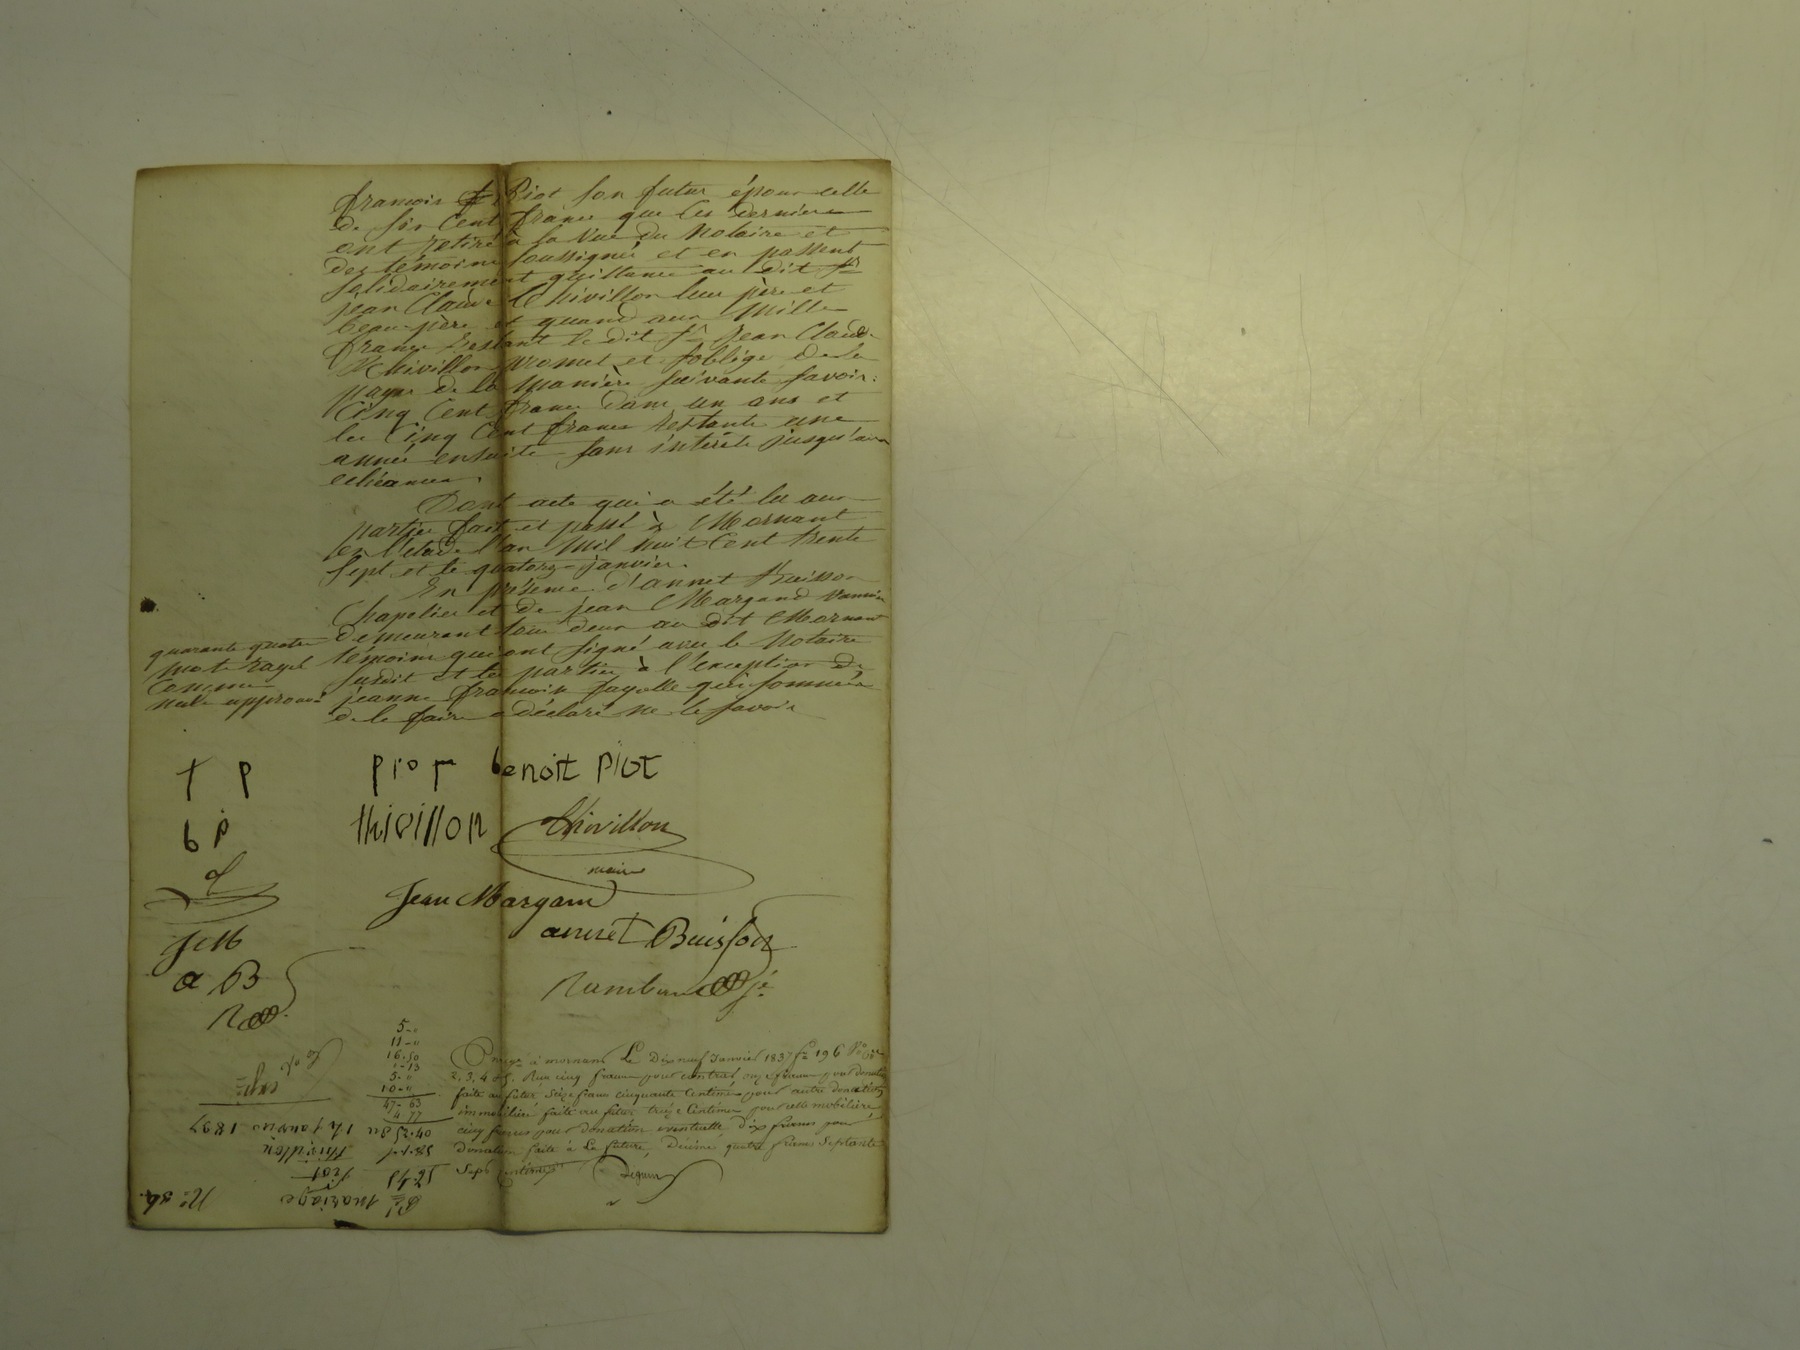 françois Piot son futur époux celle
de six Cent francs que ces derniers
ont retiré à la vue du Notaire et
des témoins soussignés et en passent
solidairement quittance au dit Sr
jean Claude Thivillon leur père et
beau-père et quand aux Mille
francs restant le dit Sr Jean Claude
Thivillon promet et s'oblige de le
payer de la manière suivante savoir:
Cinq Cent francs dans un ans et
les Cinq Cent francs restants une
année ensuite sans intérêts jusqu'aux
echéances.
Dont acte qui a été lu aux
parties fait et passé à Mornant
en l'étude l'an Mil huit Cent trente
sept et le quatorze janvier.
En présence d'annet Buisson
Chapelier et de jean Margand
demeurant tous deux au dit Mornant
témoins qui ont signé avec le Notaire
susdit et les parties à l'exception de
jeanne françoise fayolle qui sommée
de le faire a déclaré ne le savoir
quarante quatre
mots rayés
comme
nuls approuvé
P piot benoit piot
b p thivillon Thivillon
maire
Jean Margand
J M
annet Buisson
a B
5-"
11-"
16-50
1-13
5-"
10-"
47-63
4 77
à mornant Le Dix neuf Janvier 1837 fo 196
2, 3, 4 Reçu cinq francs pour contrat, onze francs pour donation
faite au futur Seize francs cinquante Centimes pour autre donation
immobilière faite au futur treize Centimes pour celle mobilière
cinq francs pour donation eventuelle Dix francs pour
donation faite à La future, Décime quatre francs Septante
Sept centimes
Du 14 janvier 1837
Thivillon
Piot
mariage
No 34.